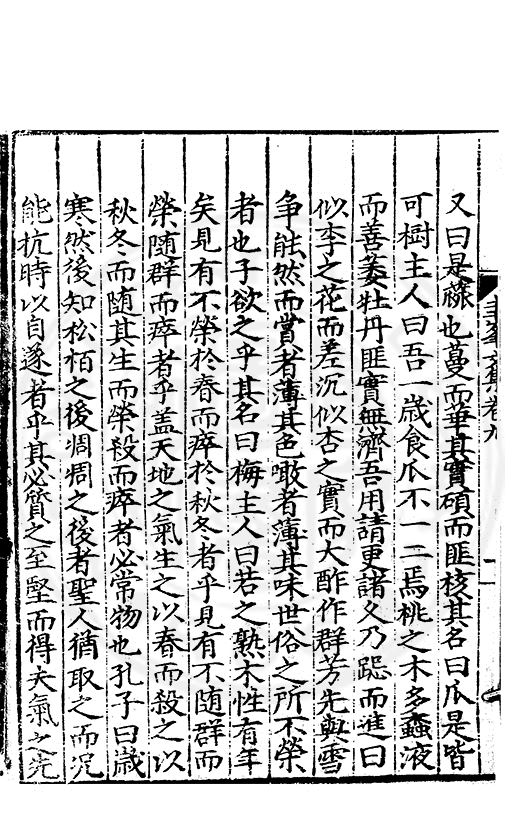 圭峯文集卷九
又曰是藤也蔓而華其實碩而匪核其名曰瓜是皆
可樹主人曰吾一歲食瓜不一二焉桃之木多蠹液
而善萎牡丹匪實無濟吾用請更諸久乃跽而進曰
似李之花而差沉似杏之實而大酢作群芳先與雪
爭能然而嘗者薄其色噉者薄其味世俗之所不榮
者也子欲之乎其名曰梅主人曰若之熟木性有年
矣見有不榮於春而瘁於秋冬者乎見有不随群而
榮随群而瘁者乎盖天地之氣生之以春而殺之以
秋冬而随其生而榮殺而瘁者必常物也孔子曰歲
寒然後知松栢之後凋凋之後者聖人猶取之而况
能抗時以自遂者乎其必質之至堅而得夫氣之先